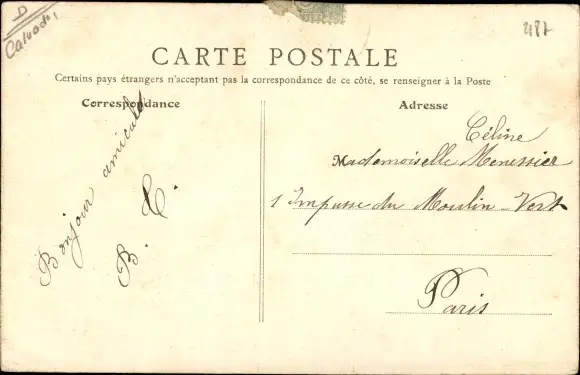 D
Calvados
487
CARTE POSTALE
Certains pays étrangers n'acceptant pas la correspondance de ce côté, se renseigner à la Poste
Correspondance
Bonjour amical
B. C.
Adresse
Céline
Mademoiselle Menessier
1 Impasse du Moulin-Vert
Paris